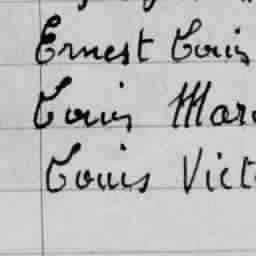 Ernest Louis
Louis Mar
Louis Vict